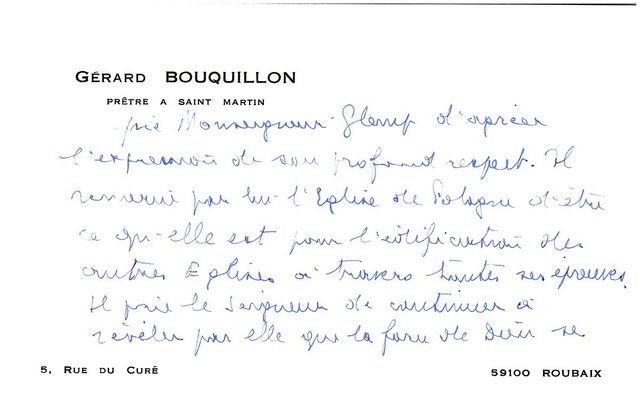 GÉRARD BOUQUILLON
PRÊTRE A SAINT MARTIN
prie Monseigneur Glemp d'agréer
l'expression de son profond respect. Il
remercie par lui l'Eglise de Pologne d'être
ce qu'elle est pour l'édification des
autres Eglises à travers toutes ses épreuves.
Il prie le Seigneur de continuer à
révéler par elle que la force de Dieu se
5, RUE DU CURÉ
59100 ROUBAIX